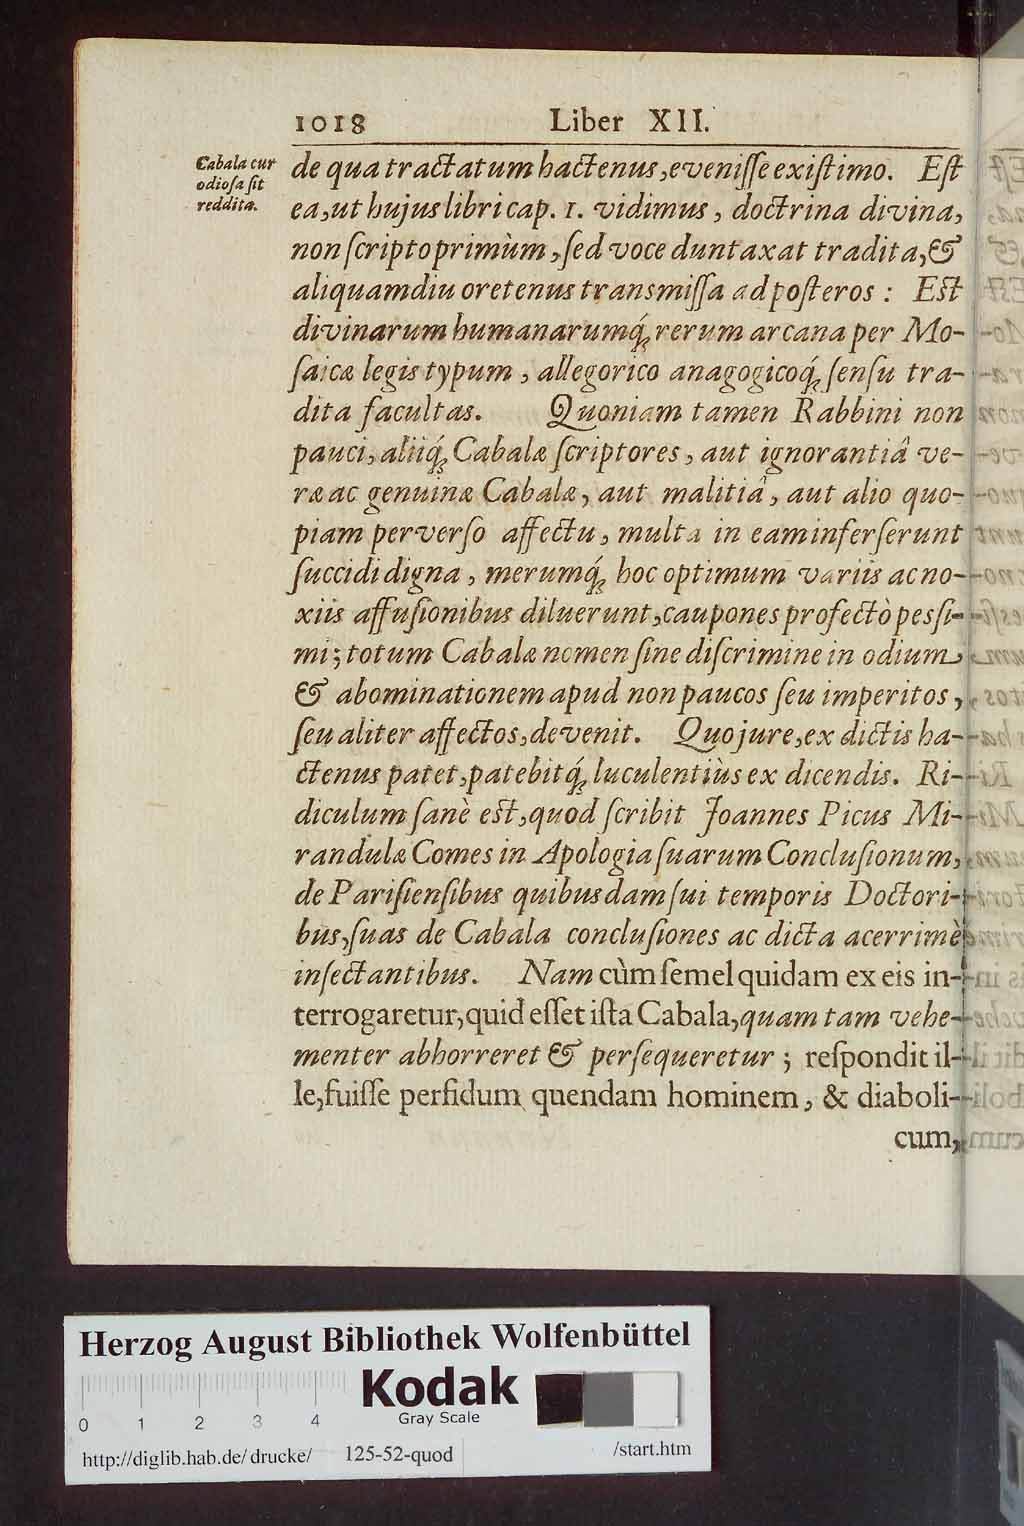 1018 Liber XII.
Cabala cur
odiosa sit
reddita.
de qua tractatum hactenus, evenisse existimo. Est
ea, ut hujus libri cap. 1. vidimus, doctrina divina,
non scripto primùm, sed voce duntaxat tradita, &
aliquamdiu oretenus transmissa ad posteros : Est
divinarum humanarumq́; rerum arcana per Mo-
saicæ legis typum, allegorico anagogicoq́; sensu tra-
dita facultas. Quoniam tamen Rabbini non
pauci, aliiq́; Cabalæ scriptores, aut ignorantiâ ve-
ræ ac genuinæ Cabalæ, aut malitiâ, aut alio quo-
piam perverso affectu, multa in eam inferserunt
succidi digna, merumq́; hoc optimum variis ac no-
xiis affusionibus diluerunt, caupones profectò pessi-
mi; totum Cabalæ nomen sine discrimine in odium
& abominationem apud non paucos seu imperitos,
seu aliter affectos, devenit. Quo jure, ex dictis ha-
ctenus patet, patebitq́; luculentiùs ex dicendis. Ri-
diculum sanè est, quod scribit Joannes Picus Mi-
randulæ Comes in Apologia suarum Conclusionum,
de Parisiensibus quibusdam sui temporis Doctori-
bus, suas de Cabala conclusiones ac dicta acerrimè
insectantibus. Nam cùm semel quidam ex eis in-
terrogaretur, quid esset ista Cabala, quam tam vehe-
menter abhorreret & persequeretur ; respondit il-
le, fuisse perfidum quendam hominem, & diaboli-
cum,
Herzog August Bibliothek Wolfenbüttel
Kodak
Gray Scale
0 1 2 3 4
http://diglib.hab.de/drucke/ 125-52-quod /start.htm